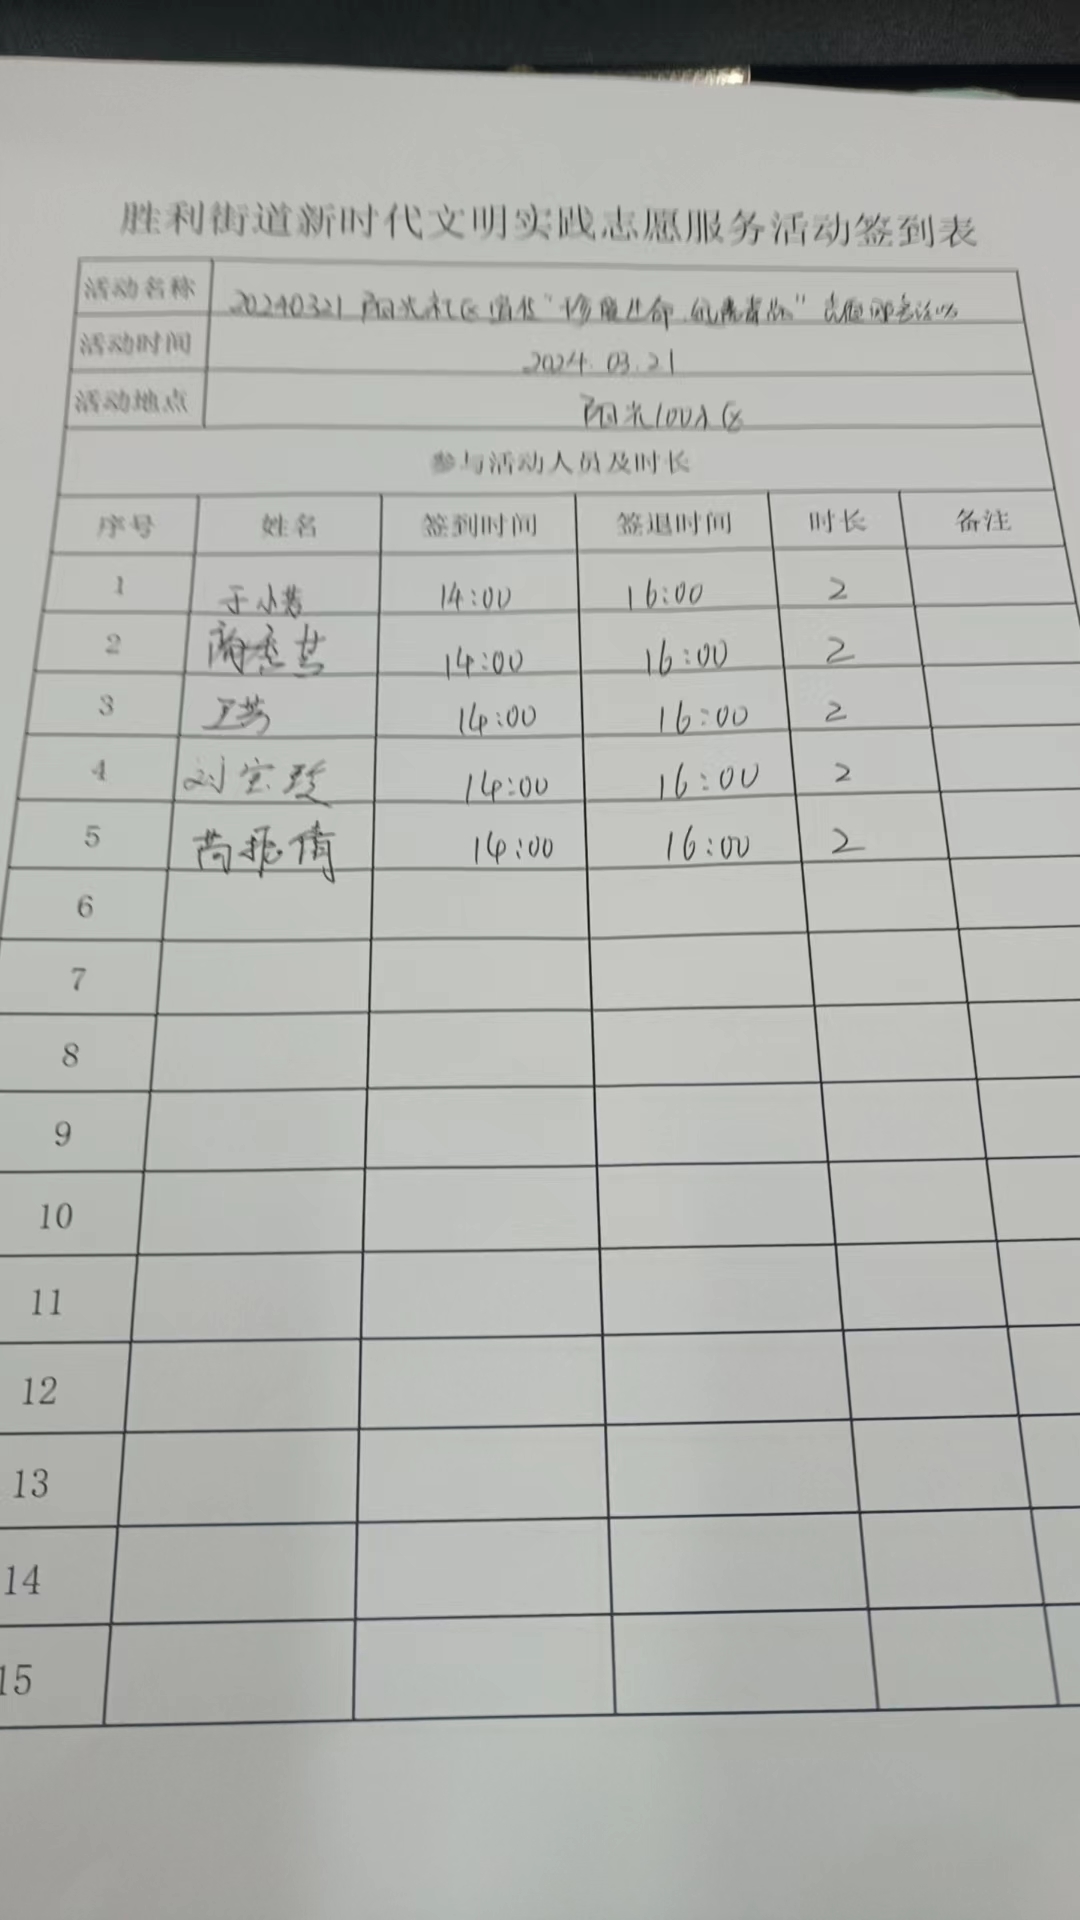 胜利街道新时代文明实践志愿服务活动签到表
活动名称 20240321 阳光社区宣传“珍爱生命 ”志愿服务活动
活动时间 2024.03.21
活动地点 阳光100小区
参与活动人员及时长
序号 姓名 签到时间 签退时间 时长 备注
1 14:00 16:00 2
2 14:00 16:00 2
3 14:00 16:00 2
4 刘宝 14:00 16:00 2
5 14:00 16:00 2
6
7
8
9
10
11
12
13
14
15